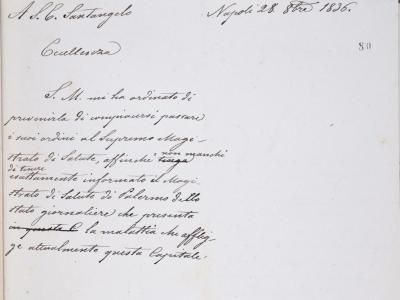 A S. E. Santangelo
Napoli 28. 8bre 1836.
80
Eccellenza
S. M. mi ha ordinato di
prevenirla di compiacersi passare
i suoi ordini al Supremo Magi-
strato di Salute, affinchè tenga non manchi
di tenere
esattamente informato il Magi-
strato di Salute di Palermo dello
stato giornaliere che presenta
in questa C la malattia che afflig-
ge attualmente questa Capitale.